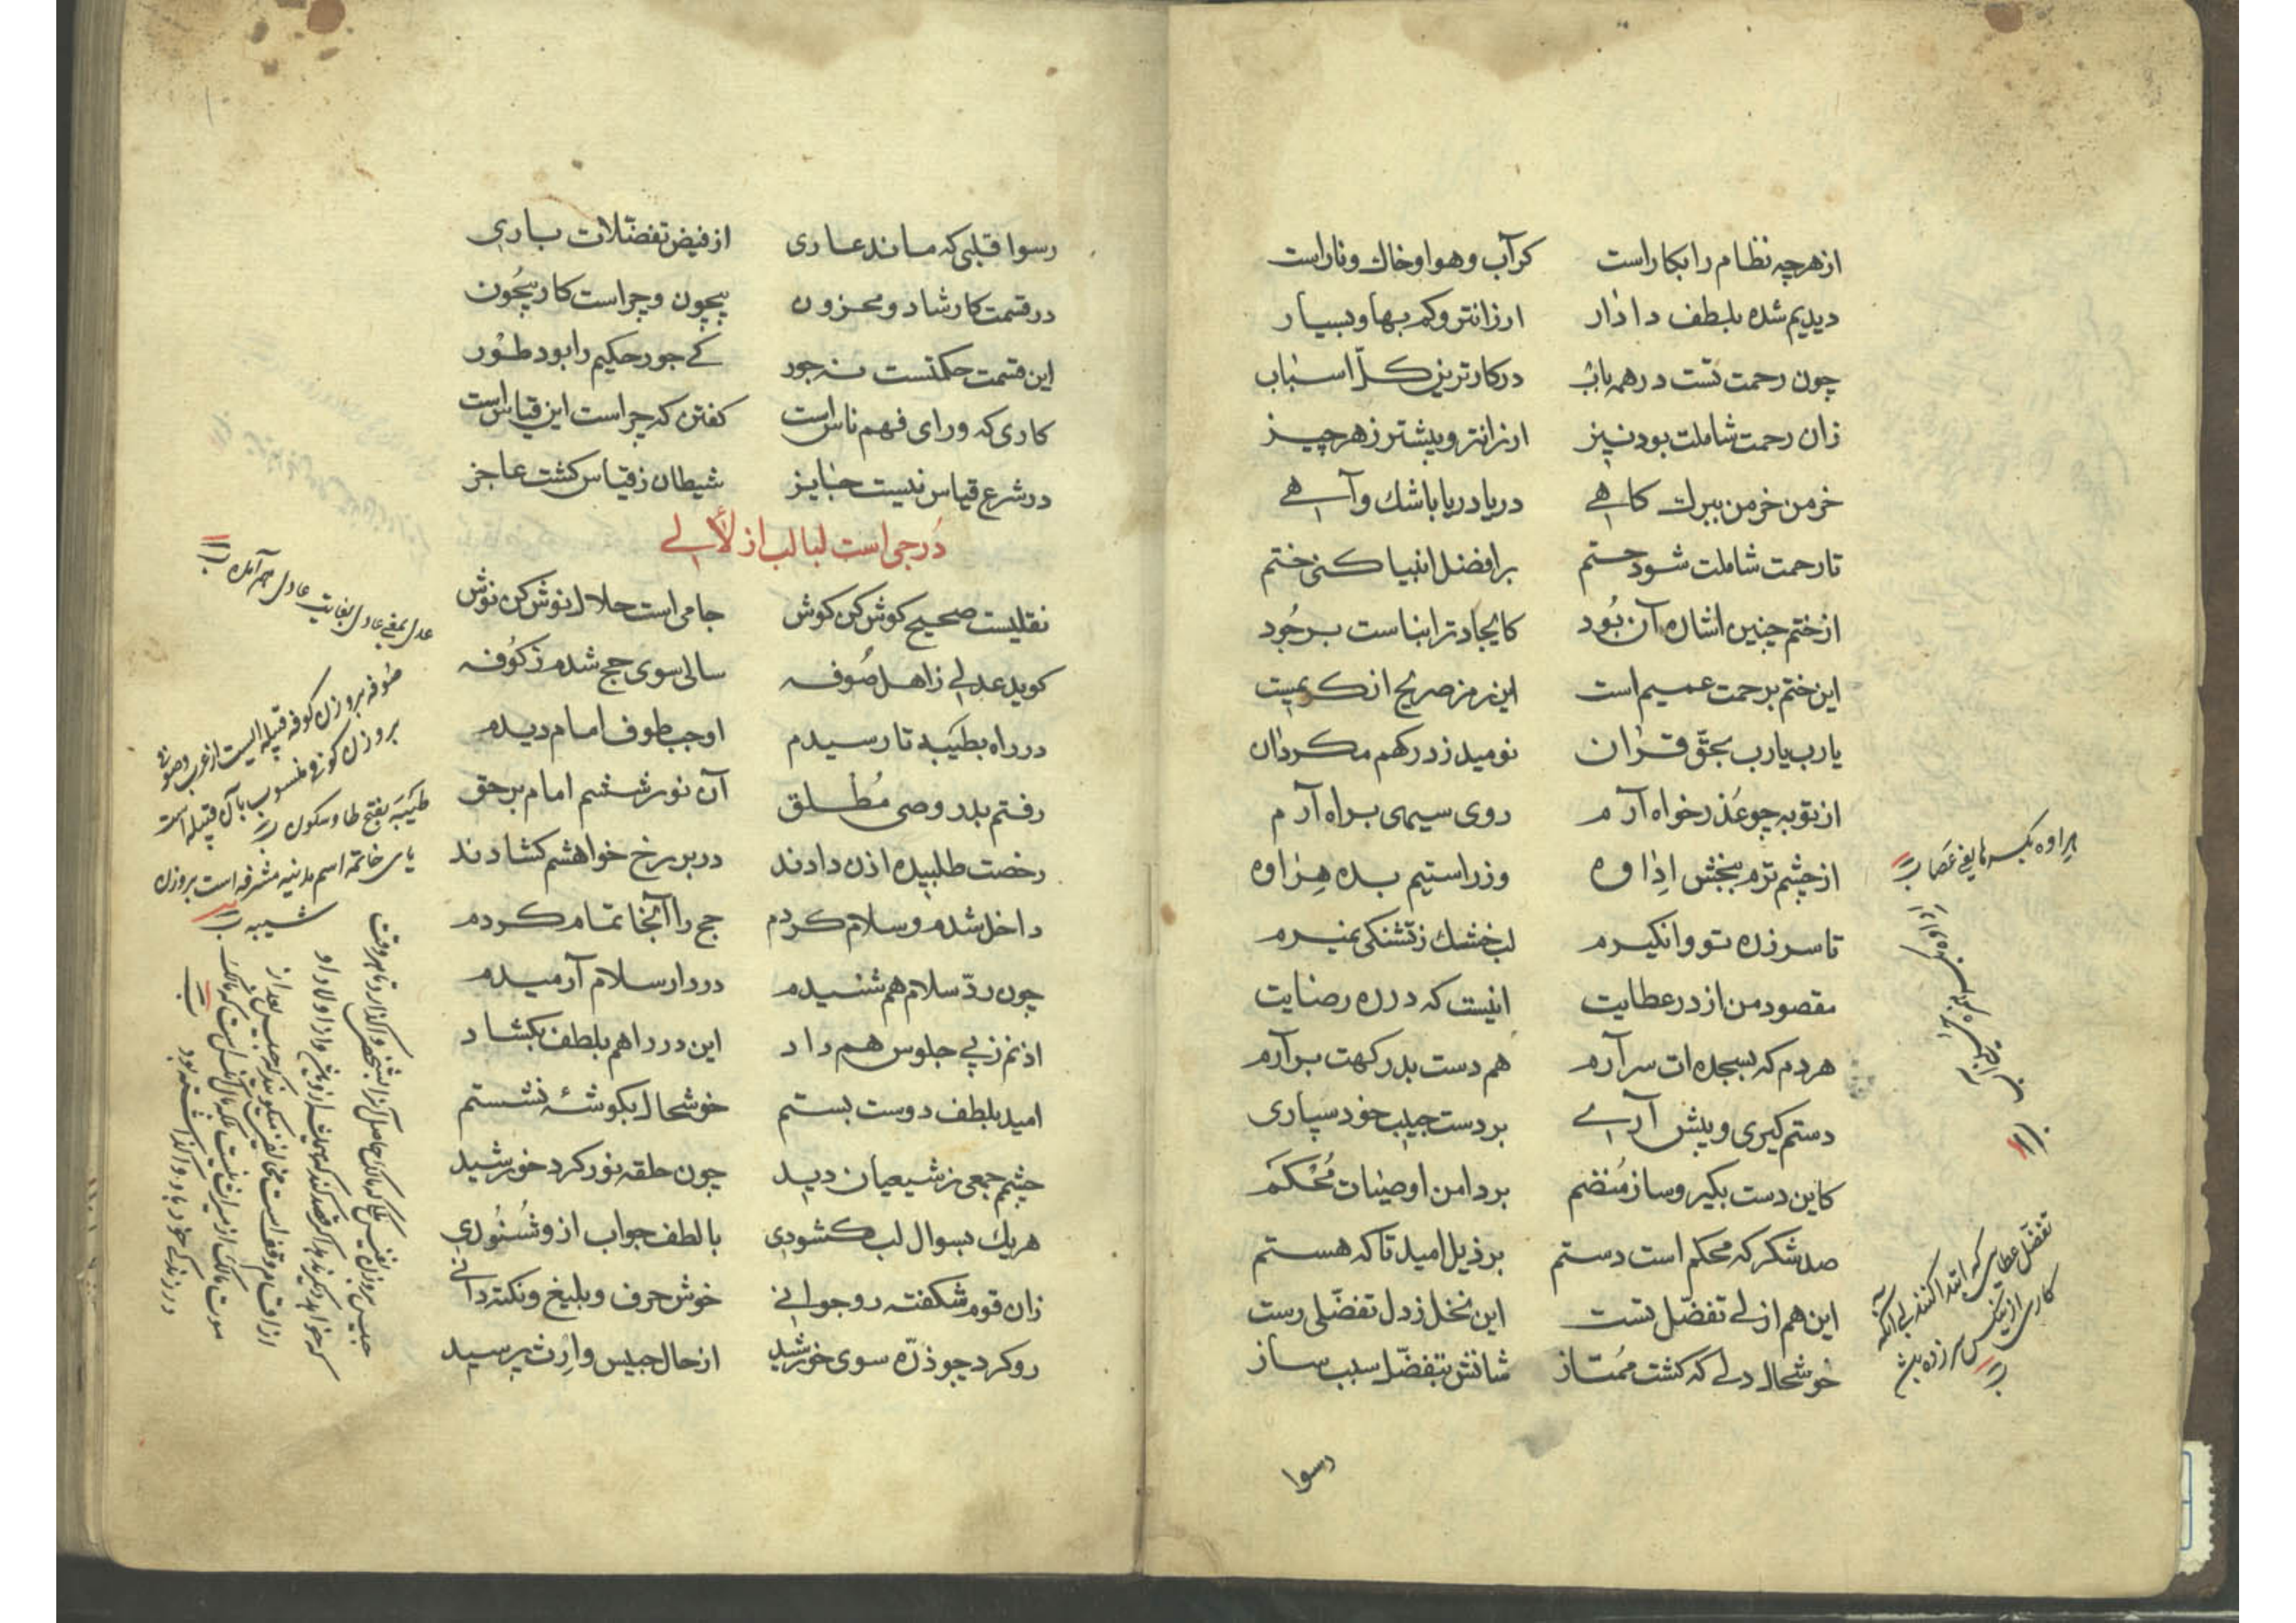 از هرچه نظام را بکار است    کز آب و هوا و خاک و نار است
دیدیم شده بلطف دادار    ارزانتر و کم بها و بسیار
چون رحمت تست در همه باب    در کارترین کل اسباب
زان رحمت شاملت بود نیز    ارزانتر و بیشتر ز هر چیز
خرمن خرمن ببرک کاهی    دریا دریا باشک و آهی
تا رحمت شاملت شود حتم    بر افضل انبیا کنی ختم
از ختم چنین اشاره آن بود    کایجاد ترا بناست بر جود
این ختم بر رحمت عمیم است    این رمز صریح از کریمیست
یارب یارب بحق قرآن    نومید ز درکهم مکردان
از توبه چو عذرخواه آرم    روی سیهی براه آرم
از چشم ترم ببخش اداوه    وز راستیم بده هراوه
تا سر زده تو وا نکیرم    لب خشک ز تشنکی نمیرم
مقصود من از در عطایت    اینست که در ره رضایت
هر دم که بسجده ات سر آرم    هم دست بدرکهت بر آرم
دستم کیری و پیش آری    بر دست حبیب خود سپاری
کاین دست بکیر و ساز منضم    بر دامن اوصیات محکم
صد شکر که محکم است دستم    بر ذیل امید تا که هستم
این هم ازلی تفضل تست    این نخل ز دل تفضلی رست
خوشحال دلی که کشت ممتاز    شانش بتفضل سبب ساز
هراوه بکسر ها یعنی عصا
تفضل عطایی که ابتدا کنند بی آنکه
کاری از نیکس سر زده
رسوا
رسوا قلبی که ماند عاری    از فیض تفضلات باری
در قسمت کار شاد و محزون    بیچون و چراست کار بیچون
این قسمت حکمتست نه جور    کی جور حکیم را بود طور
کاری که ورای فهم ناس است    کفتن که چراست این قیاس است
در شرع قیاس نیست جایز    شیطان ز قیاس کشت عاجز
درجی است لبالب از لآلی
نقلیست صحیح کوش کن کوش    جامی است حلال نوش کن نوش
کوید عدلی ز اهل صوفه    سالی سوی حج شدم ز کوفه
در راه بطیبه تا رسیدم    اوجب طوف امام دیدم
رفتم بدر وصی مطلق    آن نور ششم امام بر حق
رخصت طلبیده اذن دادند    در بر رخ خواهشم کشادند
داخل شدم و سلام کردم    حج را آنجا تمام کردم
چون رد سلام هم شنیدم    در دار سلام آرمیدم
اذنم ز پی جلوس هم داد    این در را هم بلطف بکشاد
امید بلطف دوست بستم    خوشحال بکوشهٔ نشستم
چشم جمعی ز شیعیان دید    چون حلقه نور کرد خورشید
هریک بسوال لب کشودی    با لطف جواب از و شنودی
زان قوم شکفته رو جوانی    خوش حرف و بلیغ و نکته دانی
رو کرد چو ذره سوی خورشید    از حال حبیس وارث پرسید
عدل بمعنی عادل بغایت عادل هم آمده
صوفه بر وزن کوفه قبیله ایست از عرب و صوفی
بر وزن کوفی منسوب بآن قبیله است
طیبه بفتح طا و سکون
یای خاتمه اسم مدینه مشرفه است بر وزن
شیبه